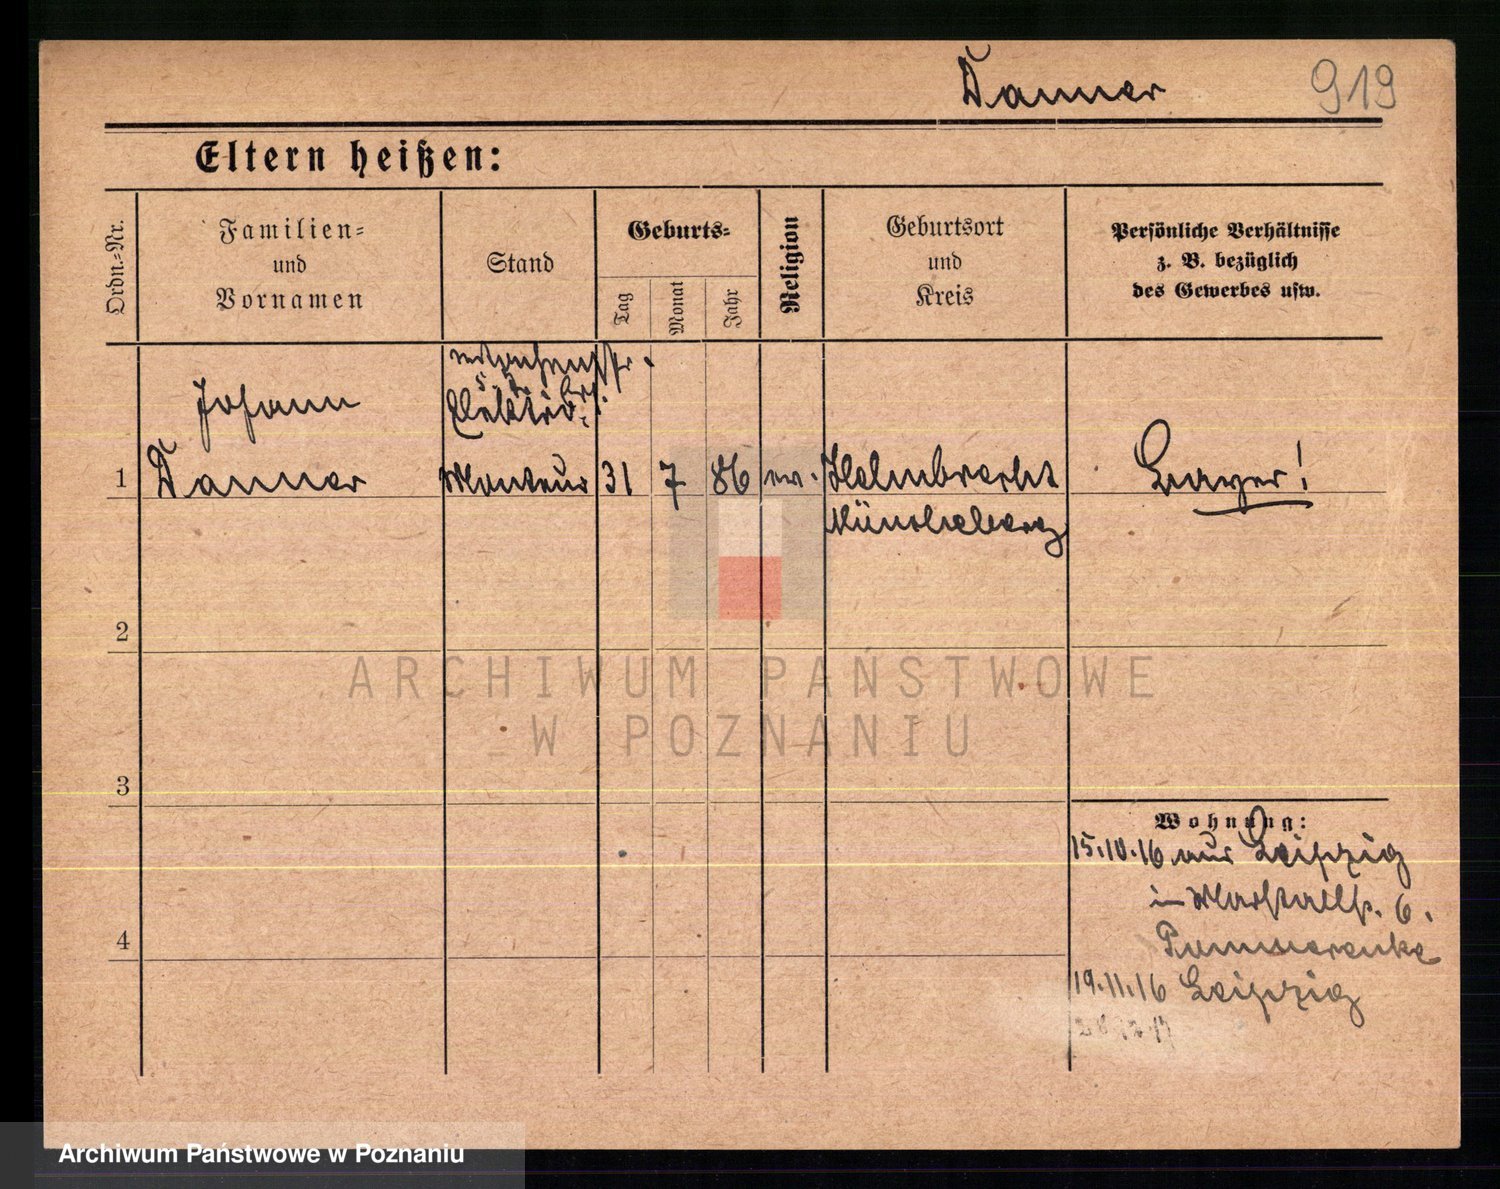 Danner 919
Eltern heißen:
Ordn.-Nr.
Familien-
und
Vornamen
Stand
Geburts-
Tag
Monat
Jahr
Religion
Geburtsort
und
Kreis
Persönliche Verhältnisse
z. B. bezüglich
des Gewerbes usw.
Johann
Elektro-
1 Danner Monteur 31 7 86 ev. Helmbrecht Bayer!
Münchberg
2
ARCHIWUM PAŃSTWOWE
W POZNANIU
3
Wohnung:
15.10.16 aus Leipzig
in Marstallstr. 6.
Pommerenke
4
19.11.16 Leipzig
Archiwum Państwowe w Poznaniu